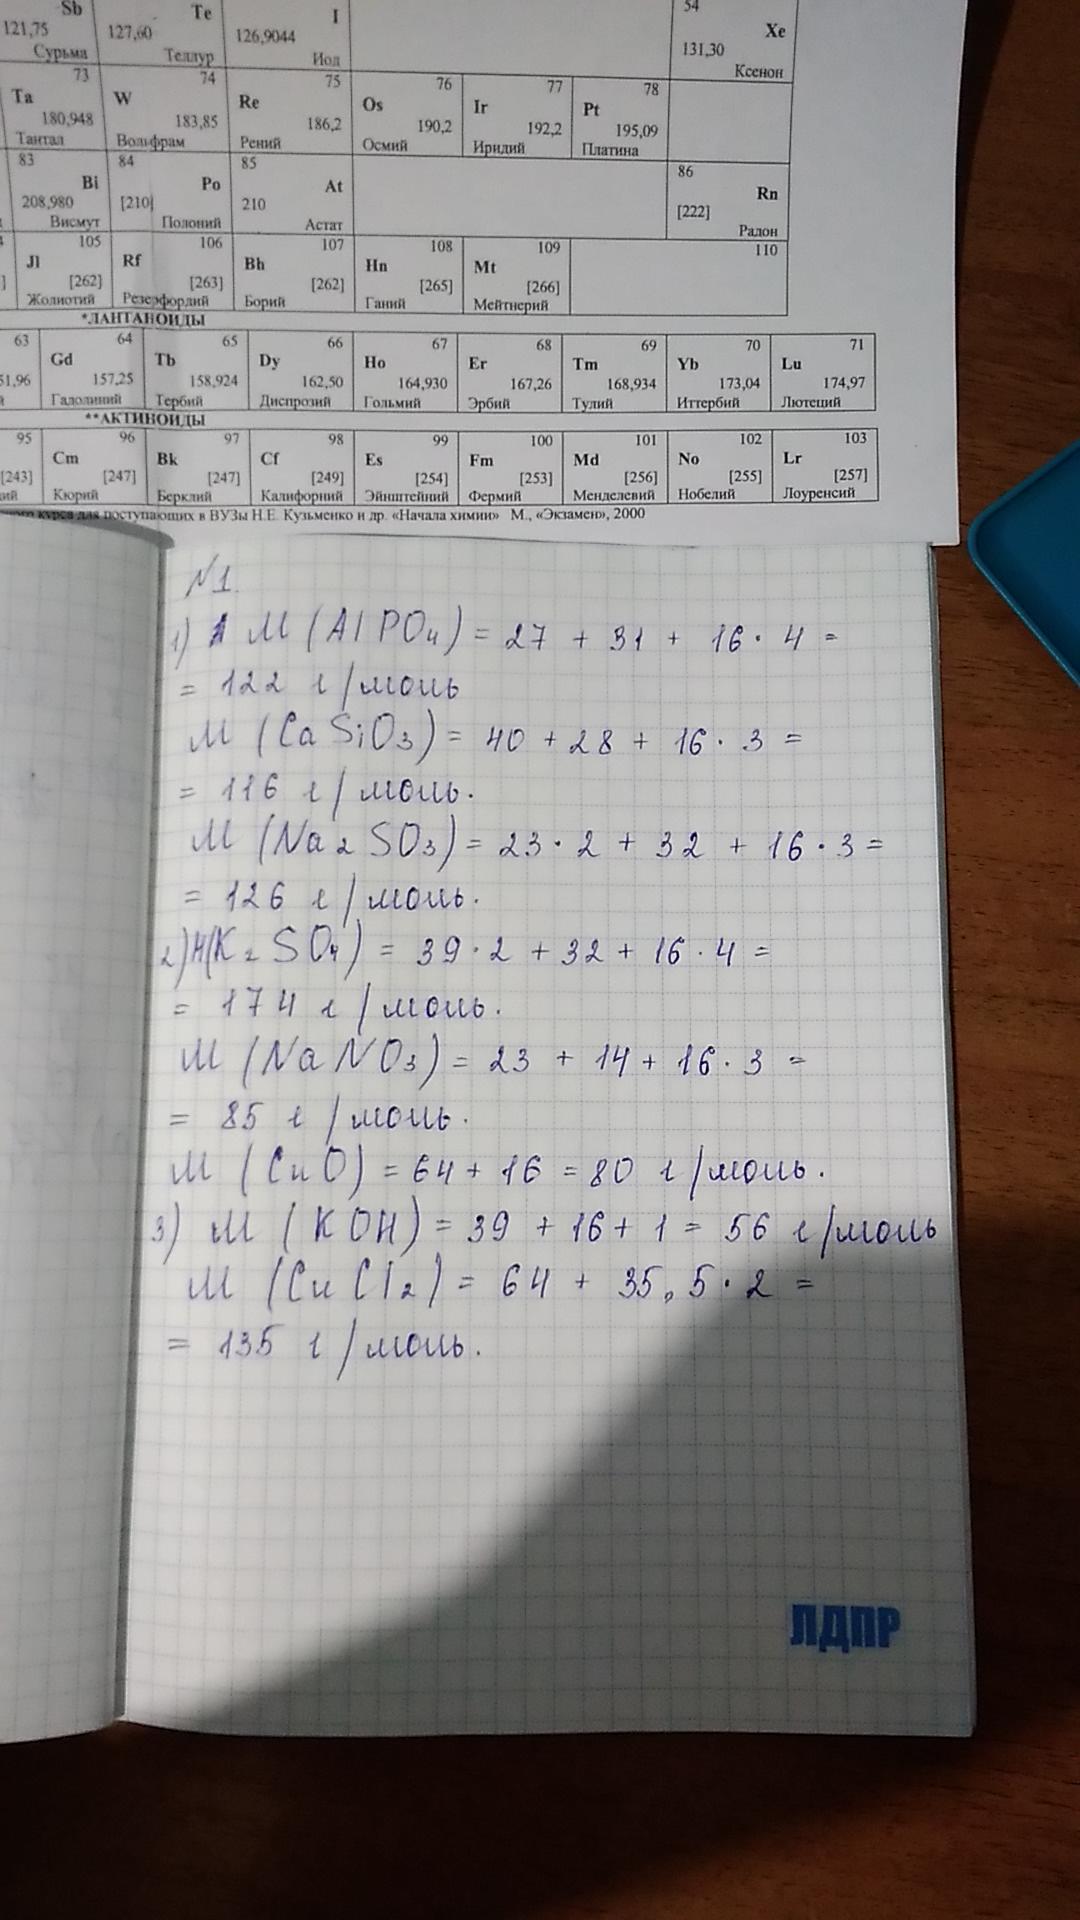 Sb Te I 54 Xe
121,75 127,60 126,9044 131,30
Сурьма Теллур Иод Ксенон
73 74 75 76 77 78
Ta W Re Os Ir Pt
180,948 183,85 186,2 190,2 192,2 195,09
Тантал Вольфрам Рений Осмий Иридий Платина
83 84 85 86
Bi Po At Rn
208,980 [210] 210 [222]
Висмут Полоний Астат Радон
105 106 107 108 109 110
Jl Rf Bh Hn Mt
[262] [263] [262] [265] [266]
Жолиотий Резерфордий Борий Ганий Мейтнерий
*ЛАНТАНОИДЫ
63 64 65 66 67 68 69 70 71
Gd Tb Dy Ho Er Tm Yb Lu
51,96 157,25 158,924 162,50 164,930 167,26 168,934 173,04 174,97
Гадолиний Тербий Диспрозий Гольмий Эрбий Тулий Иттербий Лютеций
**АКТИНОИДЫ
95 96 97 98 99 100 101 102 103
Cm Bk Cf Es Fm Md No Lr
[243] [247] [247] [249] [254] [253] [256] [255] [257]
Кюрий Берклий Калифорний Эйнштейний Фермий Менделевий Нобелий Лоуренсий
курса для поступающих в ВУЗы Н.Е. Кузьменко и др. «Начала химии» М., «Экзамен», 2000
№1.
1) M (AlPO4) = 27 + 31 + 16 · 4 =
= 122 г/моль
M (CaSiO3) = 40 + 28 + 16 · 3 =
= 116 г/моль.
M (Na2SO3) = 23 · 2 + 32 + 16 · 3 =
= 126 г/моль.
2) M(K2SO4) = 39 · 2 + 32 + 16 · 4 =
= 174 г/моль.
M (NaNO3) = 23 + 14 + 16 · 3 =
= 85 г/моль.
M (CuO) = 64 + 16 = 80 г/моль.
3) M (KOH) = 39 + 16 + 1 = 56 г/моль
M (CuCl2) = 64 + 35,5 · 2 =
= 135 г/моль.
ЛДПР